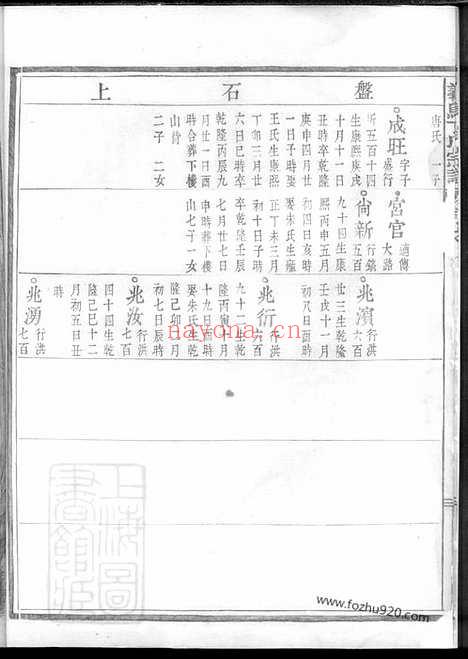 盤石上
唐氏 一子
成旺 字子盛行
五百十四
生康熙庚戌
十月十一日
丑時卒乾隆
庚申四月廿
一日子時娶
王氏生康熙
丁卯三月廿
六日巳時卒
乾隆丙辰九
月廿一日酉
時合葬下樓
山背
二子 二女
宮官 適傳大路
尚新 行鏡五百
九十四生康
熙丙申五月
初四日亥時
娶朱氏生雍
正丁未三月
初十日子時
卒乾隆壬辰
七月廿七日
申時葬下樓
山七子一女
兆濱 行洪六百
廿三生乾隆
壬戌十一月
初八日酉時
兆衍 行洪六百
九十二生乾
隆丙寅十月
十九日酉時
娶朱氏生乾
隆己卯二月
初七日辰時
兆汝 行洪七百
四十四生乾
隆己巳十二
月初五日丑
時
兆湧 行洪七百
nayona.cn
上海圖書館藏
www.fozhu920.com